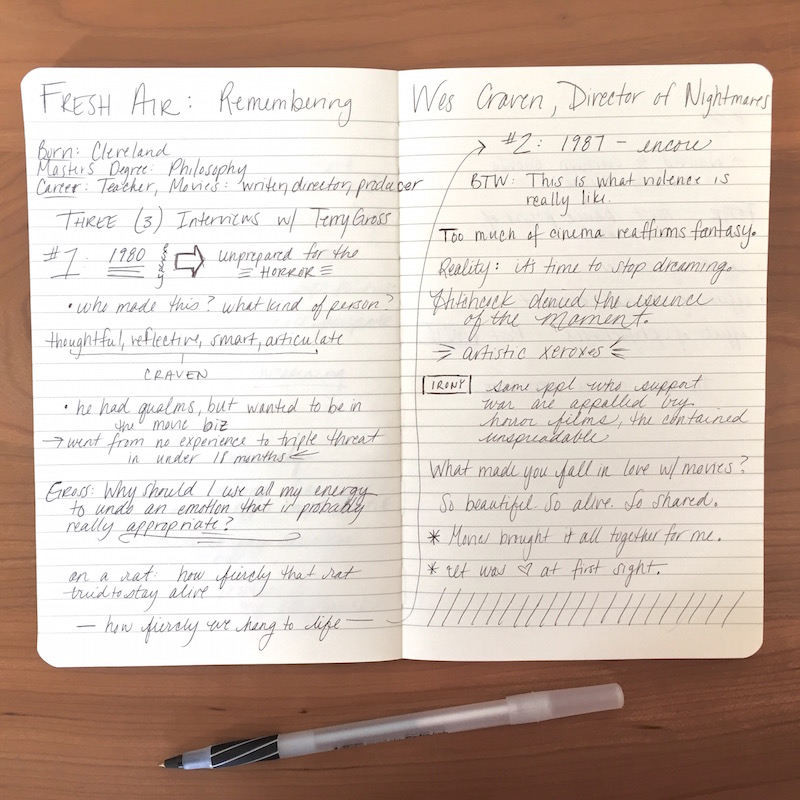 FRESH AIR: Remembering
Born: Cleveland
Masters Degree: Philosophy
Career: Teacher, Movies: writer, director, producer
THREE (3) Interviews w/ Terry Gross
#1: 1980 unprepared for the
HORROR
• who made this? what kind of person?
thoughtful, reflective, smart, articulate
CRAVEN
• he had qualms, but wanted to be in
the movie biz
→ went from no experience to triple threat
in under 18 months ←
Gross: Why should I use all my energy
to undo an emotion that is probably
really appropriate?
on a rat: how fiercly that rat
tried to stay alive
— how fiercly we hang to life —
Wes Craven, Director of Nightmares
#2: 1987 – encore
BTW: This is what violence is
really like.
Too much of cinema reaffirms fantasy.
Reality: it's time to stop dreaming.
Hitchcock denied the essence
of the moment.
artistic xeroxes
IRONY same ppl who support
war are appalled by
horror films, the contained
unspreadable
What made you fall in love w/ movies?
So beautiful. So alive. So shared.
* Movies brought it all together for me.
* It was ♡ at first sight.